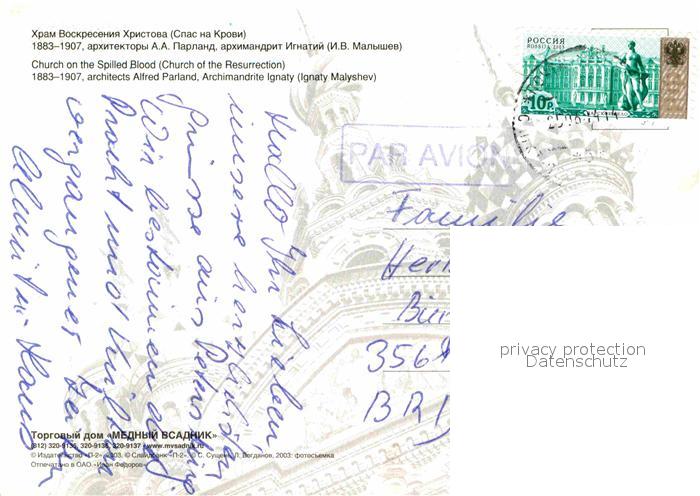 Храм Воскресения Христова (Спас на Крови)
1883–1907, архитекторы А.А. Парланд, архимандрит Игнатий (И.В. Малышев)
Church on the Spilled Blood (Church of the Resurrection)
1883–1907, architects Alfred Parland, Archimandrite Ignaty (Ignaty Malyshev)
РОССИЯ
ROSSIA 2003
10р
ЦАРСКОЕ СЕЛО
PAR AVION
Hallo Ihr Lieben
unsere herzlichsten
Grüsse aus Petersburg
Wir bestaunen die
Pracht und
vergangener Zeit
Familie
Her
Bür
356
BRD
privacy protection
Datenschutz
Торговый дом «МЕДНЫЙ ВСАДНИК»
(812) 320-9135, 320-9136, 320-9137 www.mvsadnik.ru
© Издательство «П-2», 2003. © Слайдбанк «П-2». © С. Сущеня, Л. Богданов, 2003: фотосъемка
Отпечатано в ОАО «Иван Федоров»